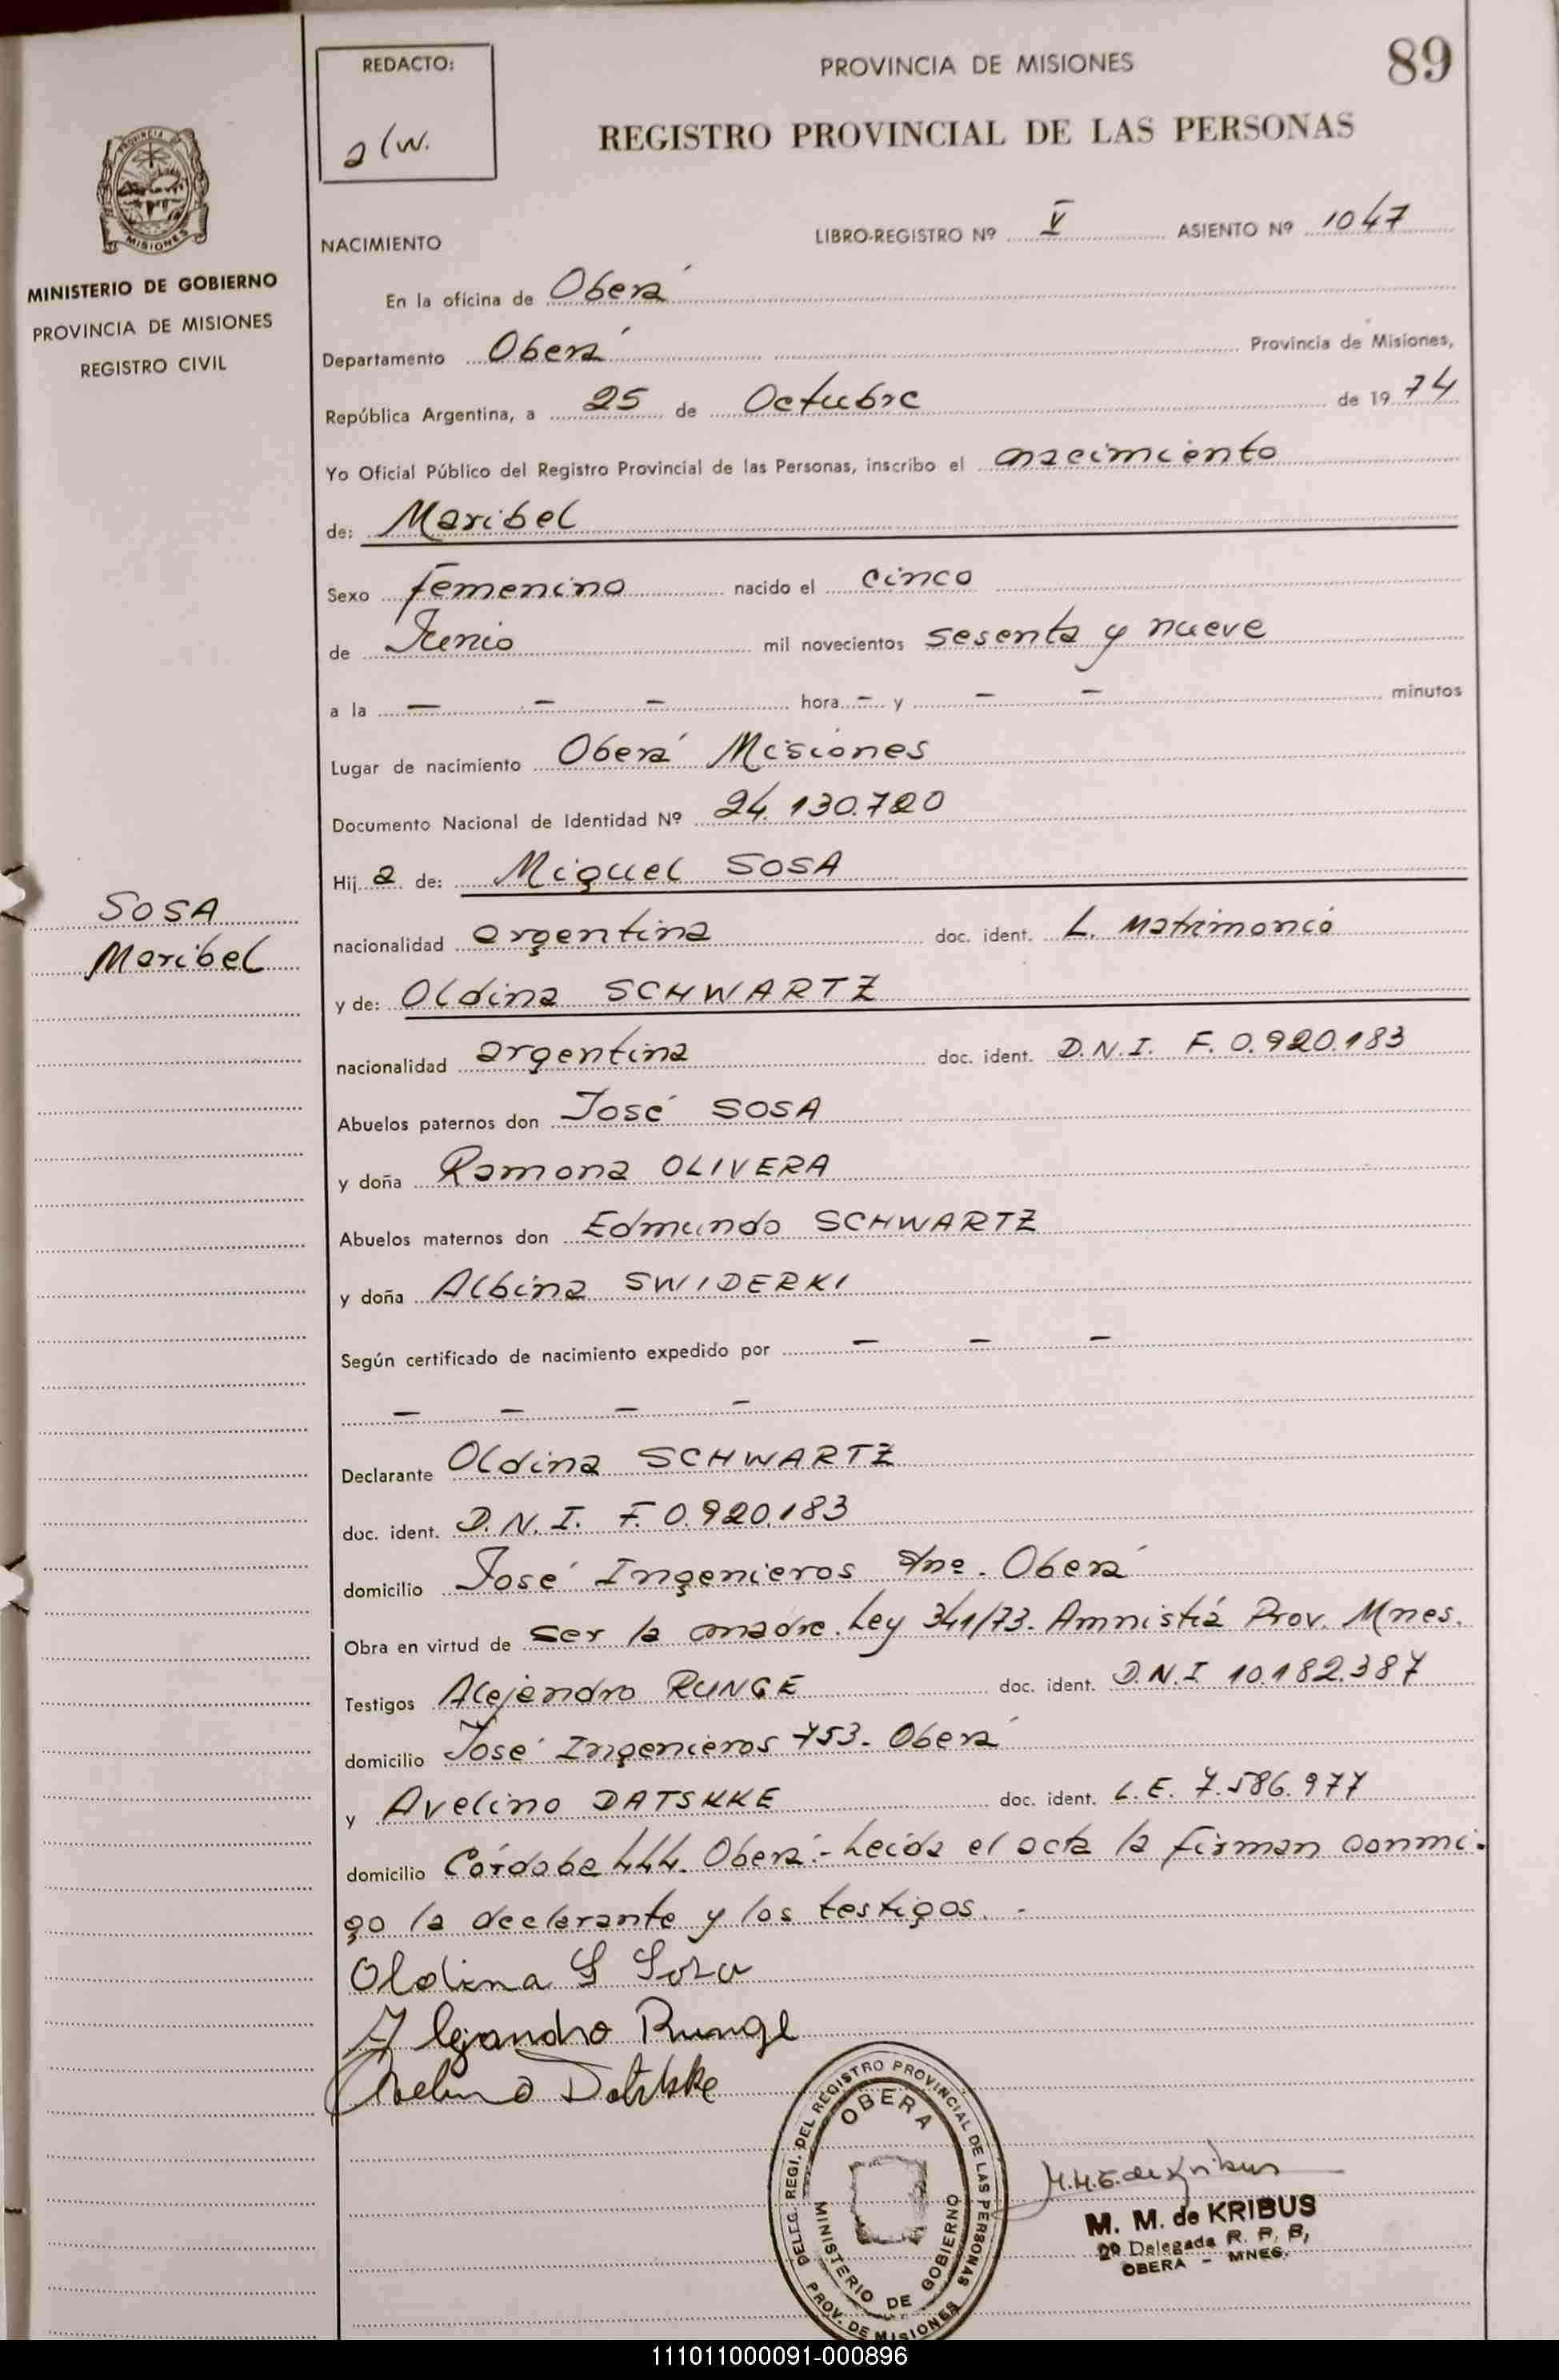 REDACTO:
PROVINCIA DE MISIONES
89
a/w.
REGISTRO PROVINCIAL DE LAS PERSONAS
PROVINCIA DE
MISIONES
MINISTERIO DE GOBIERNO
PROVINCIA DE MISIONES
REGISTRO CIVIL
NACIMIENTO LIBRO-REGISTRO Nº V ASIENTO Nº 1047
En la oficina de Oberá
Departamento Oberá Provincia de Misiones,
República Argentina, a 25 de Octubre de 1974
Yo Oficial Público del Registro Provincial de las Personas, inscribo el nacimiento
de: Maribel
Sexo femenino nacido el cinco
de Junio mil novecientos sesenta y nueve
a la — — — hora — y — — minutos
Lugar de nacimiento Oberá Misiones
Documento Nacional de Identidad Nº 24.130.720
Hija de: Miguel SOSA
SOSA
Maribel
nacionalidad argentina doc. ident. L. Matrimonio
y de: Oldina SCHWARTZ
nacionalidad argentina doc. ident. D.N.I. F. 0.920.183
Abuelos paternos don José SOSA
y doña Ramona OLIVERA
Abuelos maternos don Edmundo SCHWARTZ
y doña Albina SWIDERKI
Según certificado de nacimiento expedido por — — —
— — — —
Declarante Oldina SCHWARTZ
doc. ident. D.N.I. F. 0.920.183
domicilio José Ingenieros s/nº. Oberá
Obra en virtud de ser la madre. Ley 341/73. Amnistía Prov. Mnes.
Testigos Alejandro RUNGE doc. ident. D.N.I 10.182.387
domicilio José Ingenieros 753. Oberá
y Avelino DATSKKE doc. ident. L.E. 7.586.977
domicilio Córdoba 444. Oberá.- Leída el acta la firman conmi-
go la declarante y los testigos. -
Oldina S Sosa
Alejandro Runge
Avelino Datskke
DELEG. REGI. DEL REGISTRO PROVINCIAL DE LAS PERSONAS
OBERA
MINISTERIO DE GOBIERNO
PROV. DE MISIONES
M.M.G. de Kribus
M. M. de KRIBUS
2ª Delegada R. P. P,
OBERA - MNES.
111011000091-000896